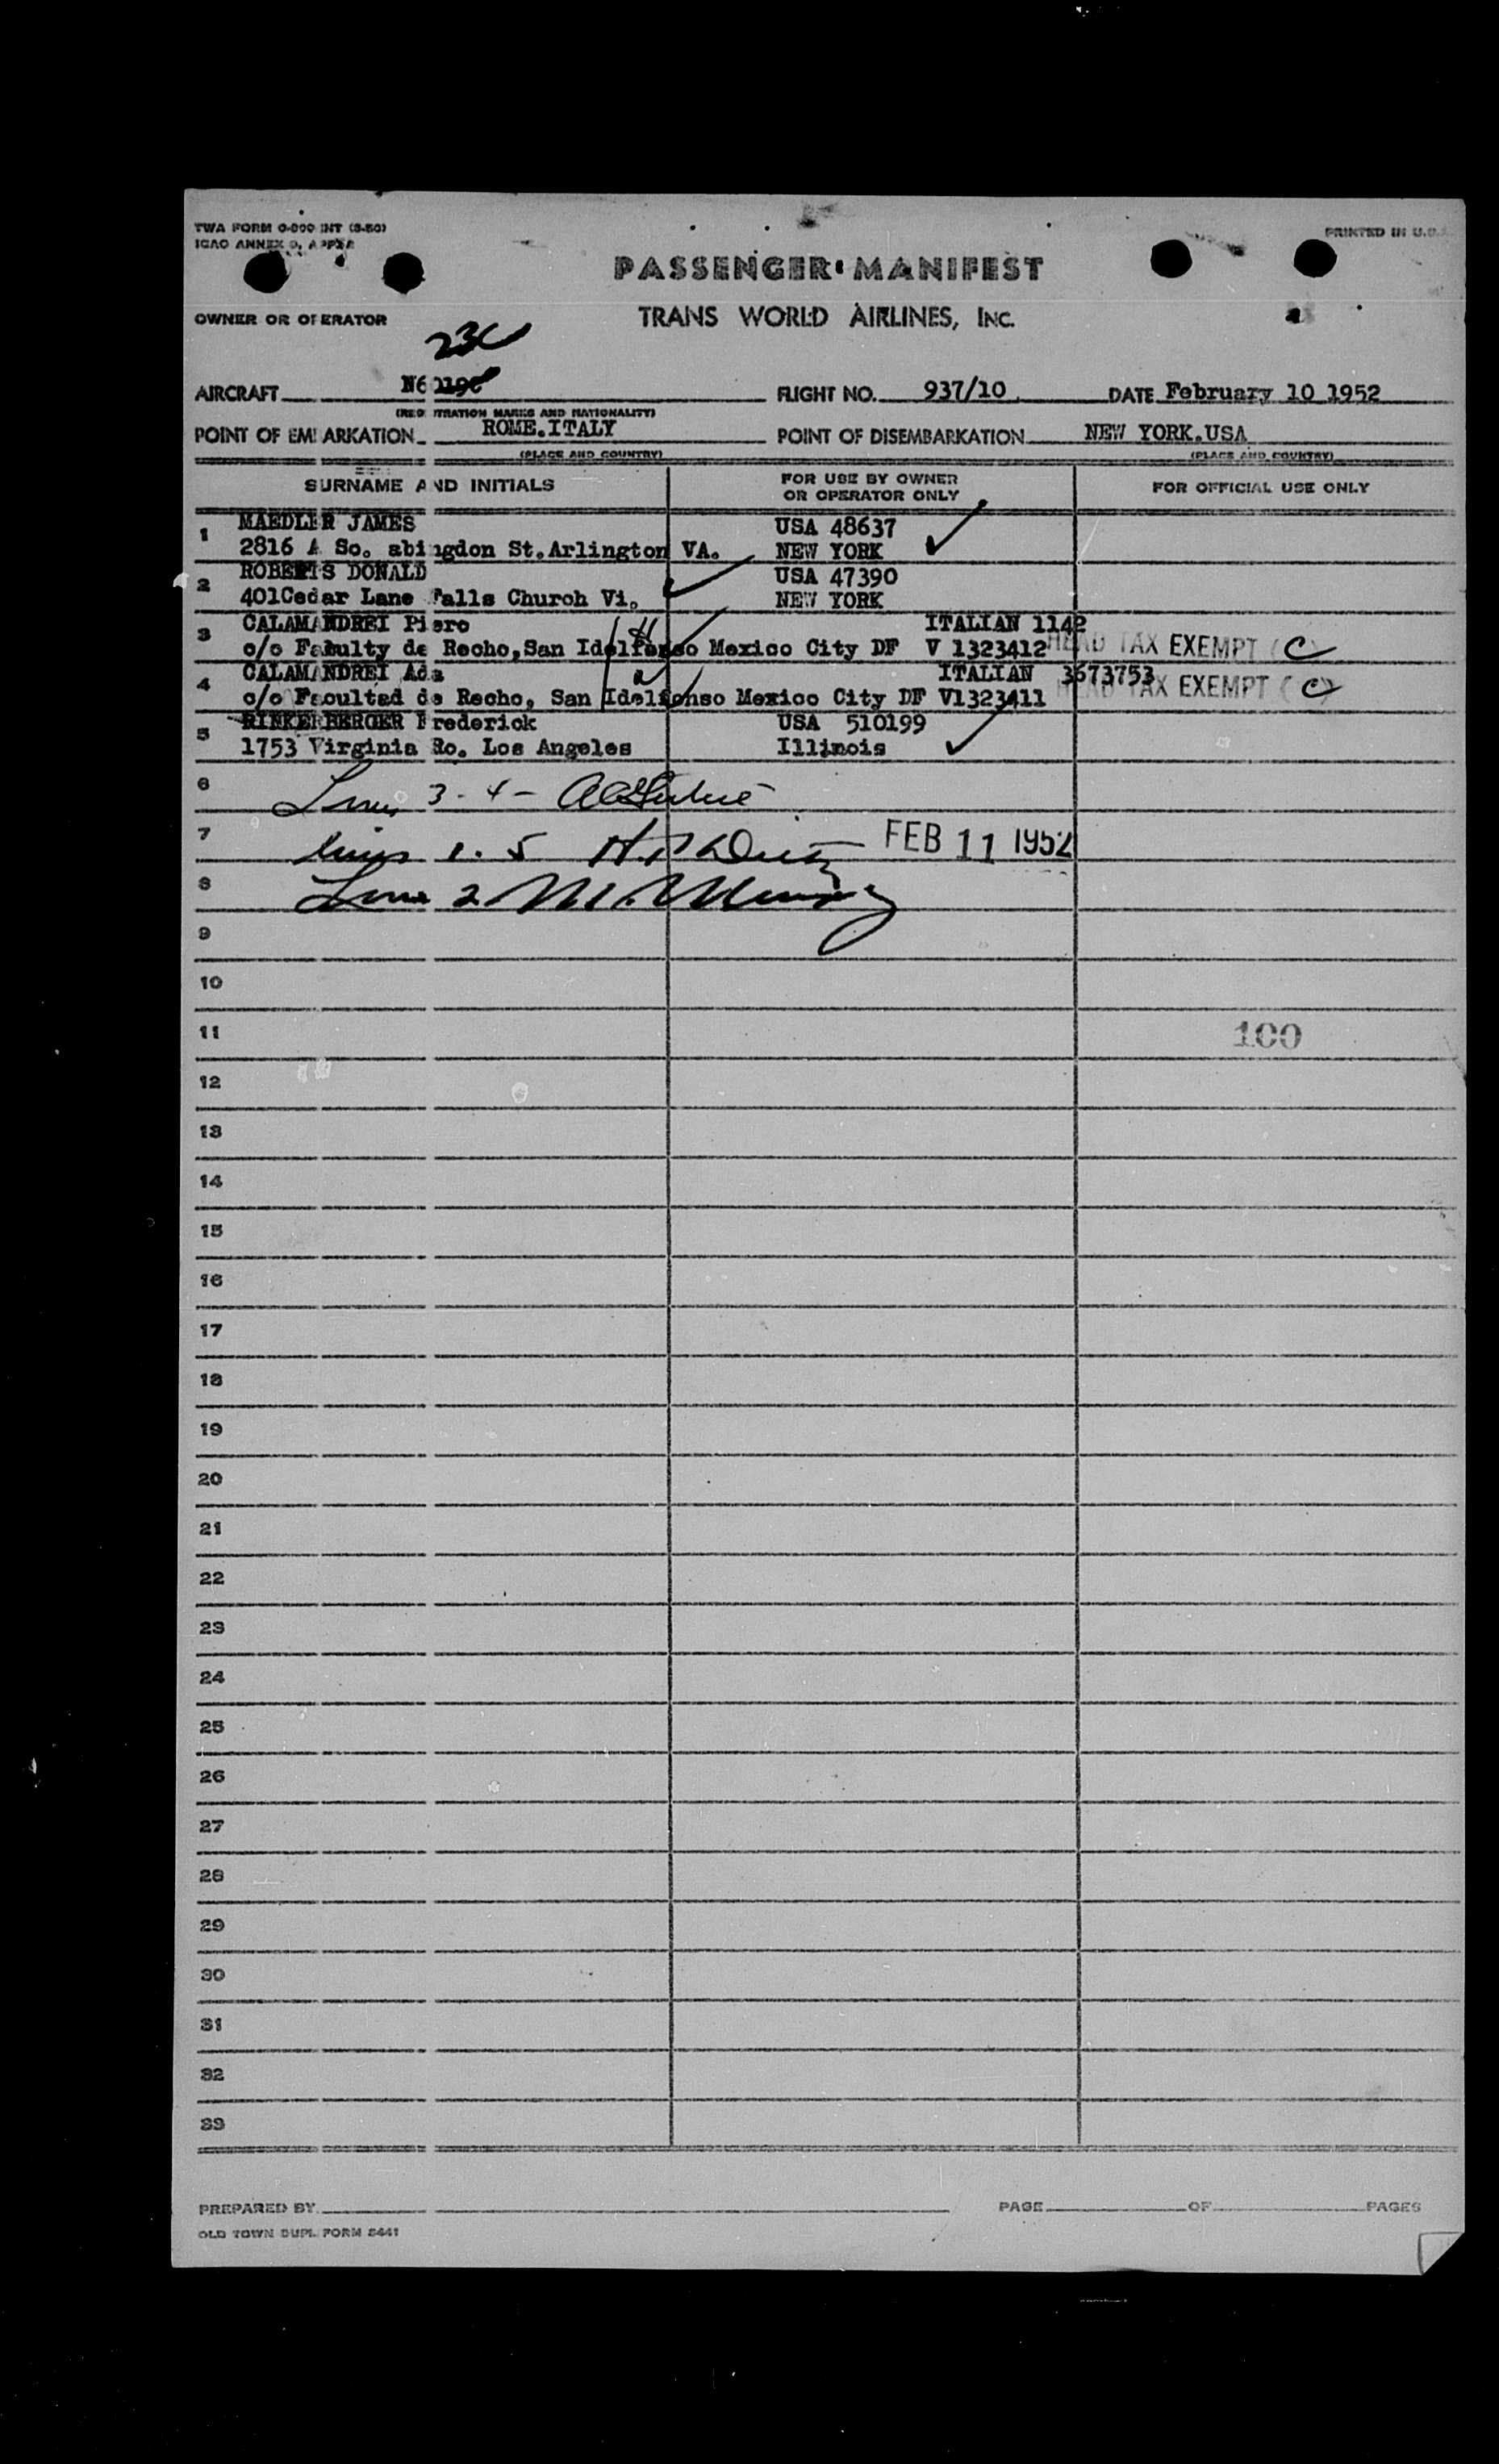 TWA FORM 0-000 INT (8-50)
PRINTED IN U.S.
ICAO ANNEX 9, APPX
PASSENGER MANIFEST
OWNER OR OPERATOR
TRANS WORLD AIRLINES, INC.
23C
AIRCRAFT N6 FLIGHT NO. 937/10 DATE February 10 1952
(REGISTRATION MARKS AND NATIONALITY)
POINT OF EMBARKATION ROME.ITALY POINT OF DISEMBARKATION NEW YORK.USA
(PLACE AND COUNTRY) (PLACE AND COUNTRY)
SURNAME AND INITIALS FOR USE BY OWNER OR OPERATOR ONLY FOR OFFICIAL USE ONLY
1 MAEDLER JAMES USA 48637
2816 A So. abingdon St.Arlington VA. NEW YORK
2 ROBERTS DONALD USA 47390
401Cedar Lane Falls Church Vi. NEW YORK
3 CALAMANDREI Piero ITALIAN 1142
c/o Faculty de Recho,San Idelfonso Mexico City DF V 1323412 HEAD TAX EXEMPT (C)
4 CALAMANDREI Ada ITALIAN 3673753
c/o Facultad de Recho, San Idelfonso Mexico City DF V1323411 HEAD TAX EXEMPT (C)
5 RINKERBERGER Frederick USA 510199
1753 Virginia Ro. Los Angeles Illinois
6 Lines 3-4-
7 lines 1. 5 FEB 11 1952
8 Line 2
9
10
11 100
12
13
14
15
16
17
18
19
20
21
22
23
24
25
26
27
28
29
30
31
32
33
PREPARED BY PAGE OF PAGES
OLD TOWN DUPL. FORM 8441